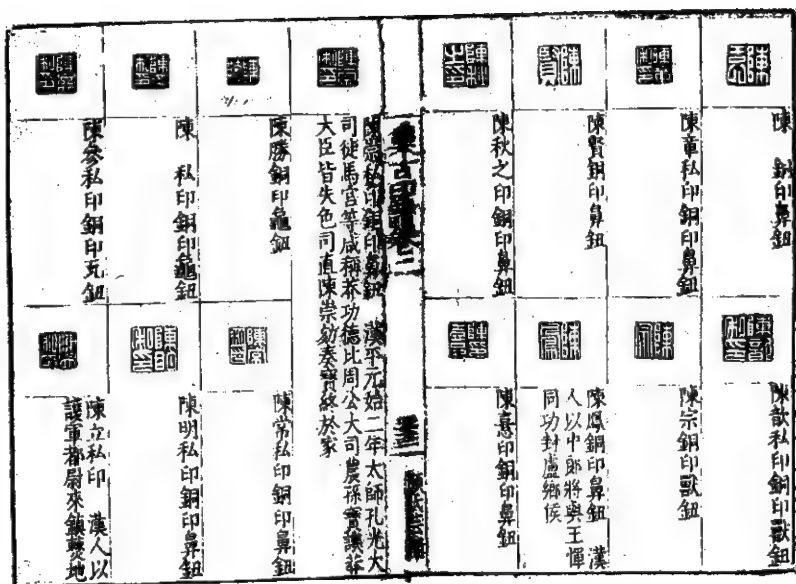 陳　銅印鼻鈕
陳章私印銅印鼻鈕
陳賢銅印鼻鈕
陳秋之印銅印鼻鈕
陳歆私印銅印獸鈕
陳宗銅印獸鈕
陳鳳銅印鼻鈕　漢
人以中郎將與王惲
同功封盧鄉侯
陳憙印銅印鼻鈕
集古印譜卷二
陳崇私印銅印鼻鈕　漢平元始二年太師孔光大
司徒馬宮等咸稱莽功德比周公大司農孫寶讓莽
大臣皆失色司直陳崇劾奏寶終於家
陳勝銅印龜鈕
陳　私印銅印龜鈕
陳參私印銅印瓦鈕
陳常私印銅印鼻鈕
陳明私印銅印鼻鈕
陳立私印　漢人以
護軍都尉來鎮茲地